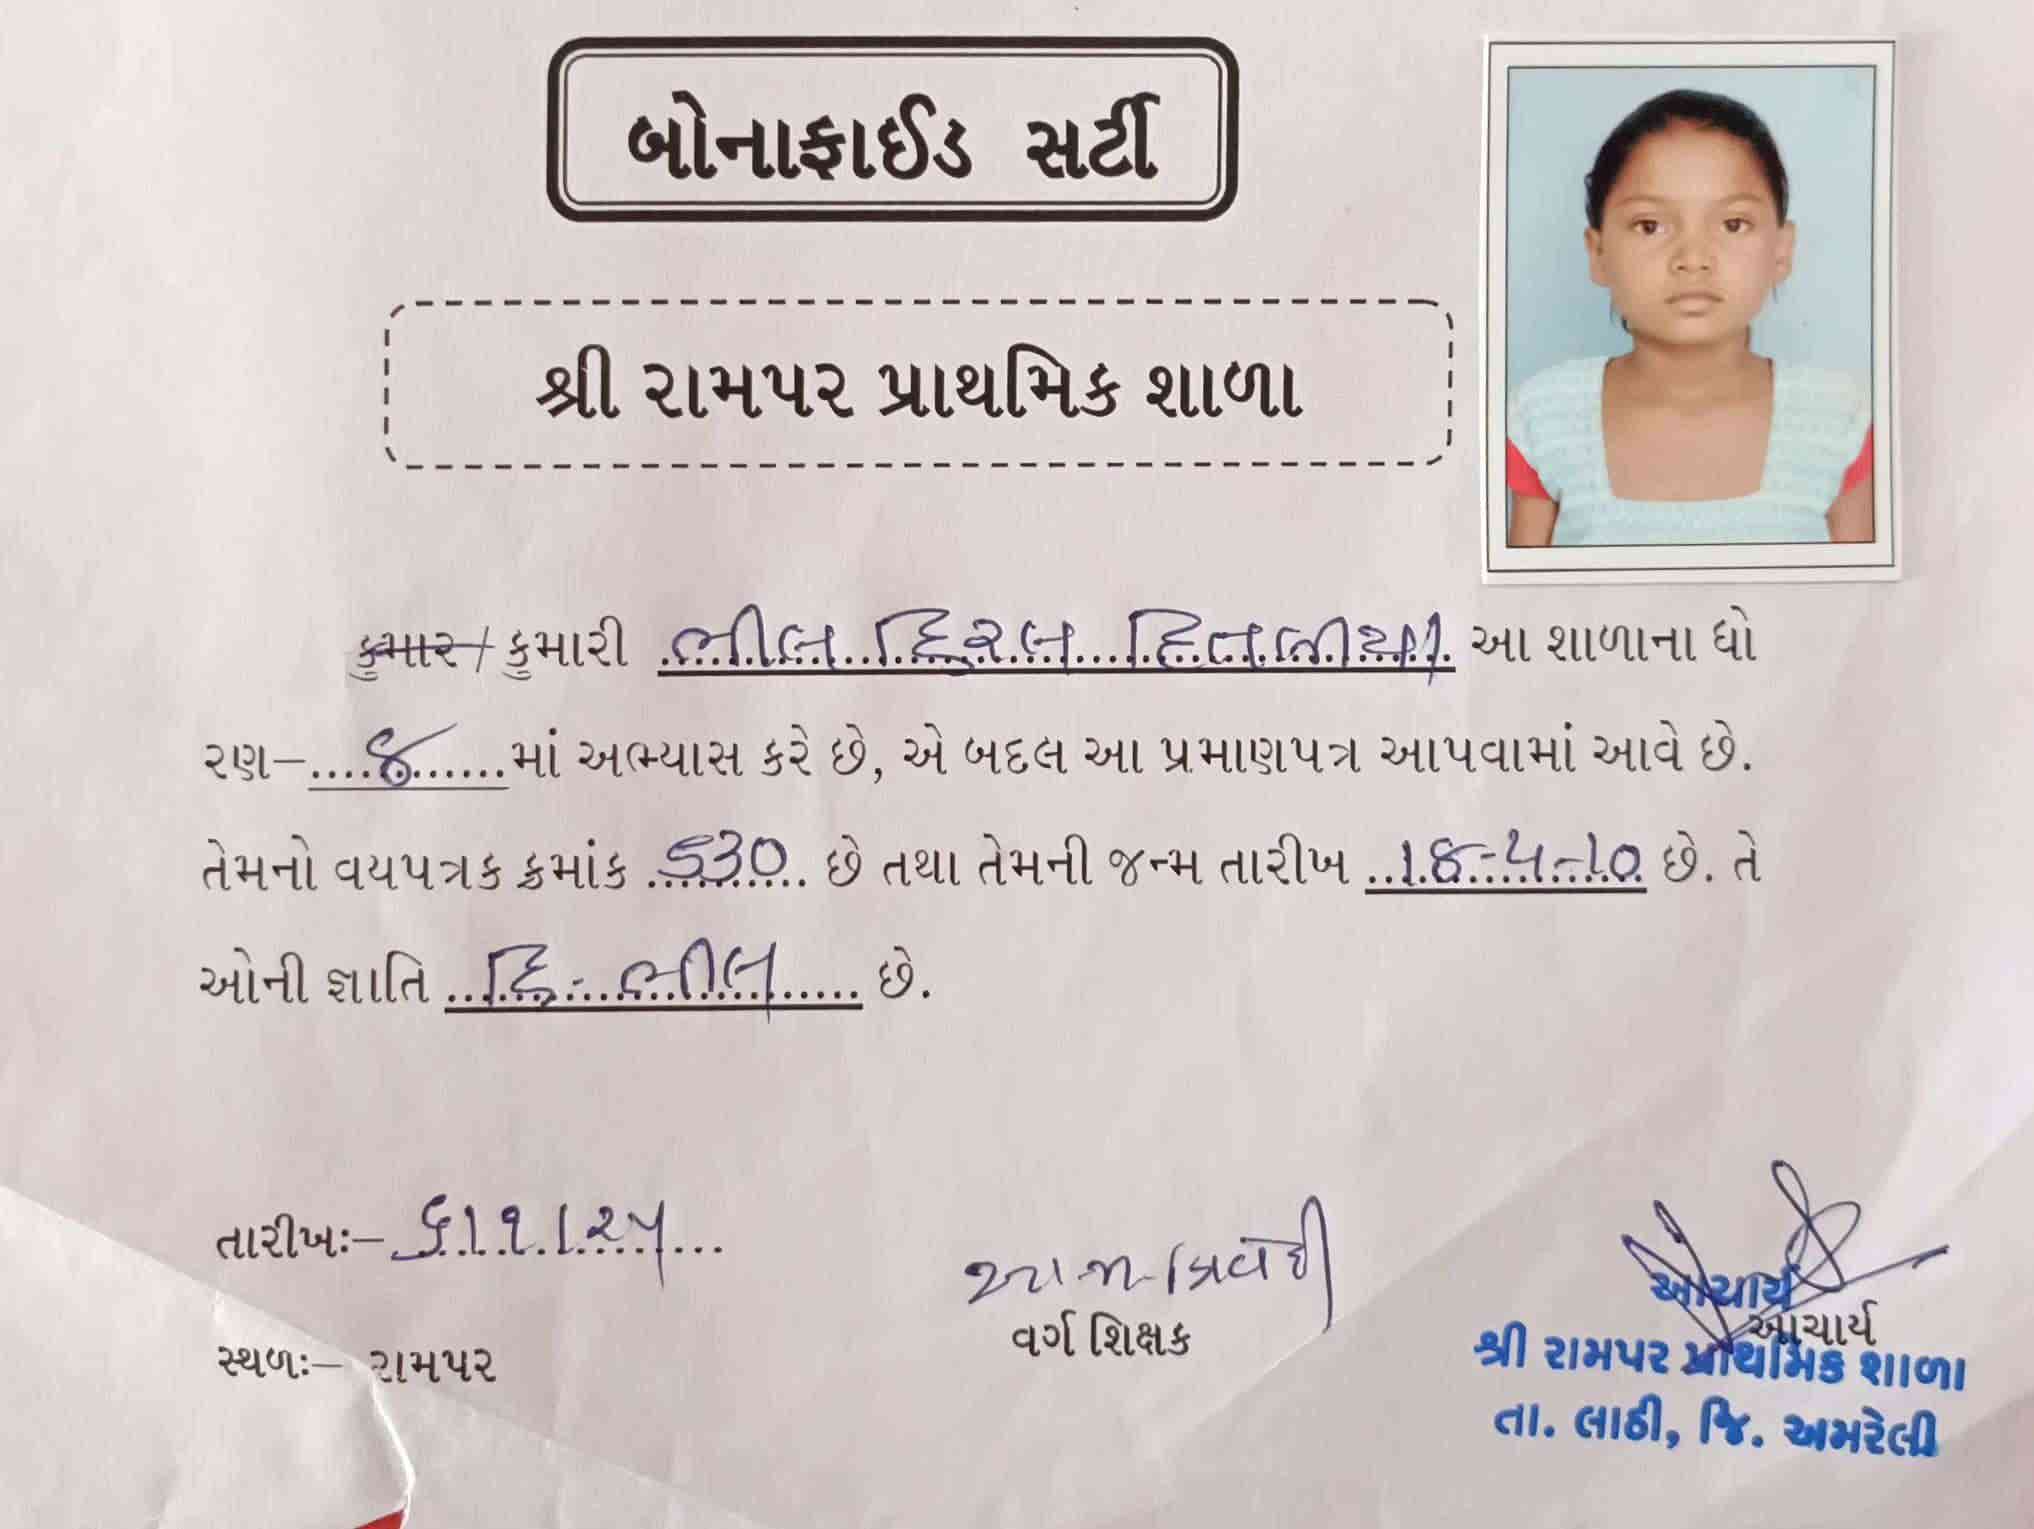 બોનાફાઈડ સર્ટી
શ્રી રામપર પ્રાથમિક શાળા
કુમાર / કુમારી ભીલ હિરલ આ શાળાના ધો
રણ– ૪ માં અભ્યાસ કરે છે, એ બદલ આ પ્રમાણપત્ર આપવામાં આવે છે.
તેમનો વયપત્રક ક્રમાંક 530 છે તથા તેમની જન્મ તારીખ 1૪-૫-10 છે. તે
ઓની જ્ઞાતિ હિ. ભીલ છે.
તારીખઃ– ૬/૧/૨૫
વર્ગ શિક્ષક
આચાર્ય
આચાર્ય
સ્થળઃ– રામપર
શ્રી રામપર પ્રાથમિક શાળા
તા. લાઠી, જિ. અમરેલી